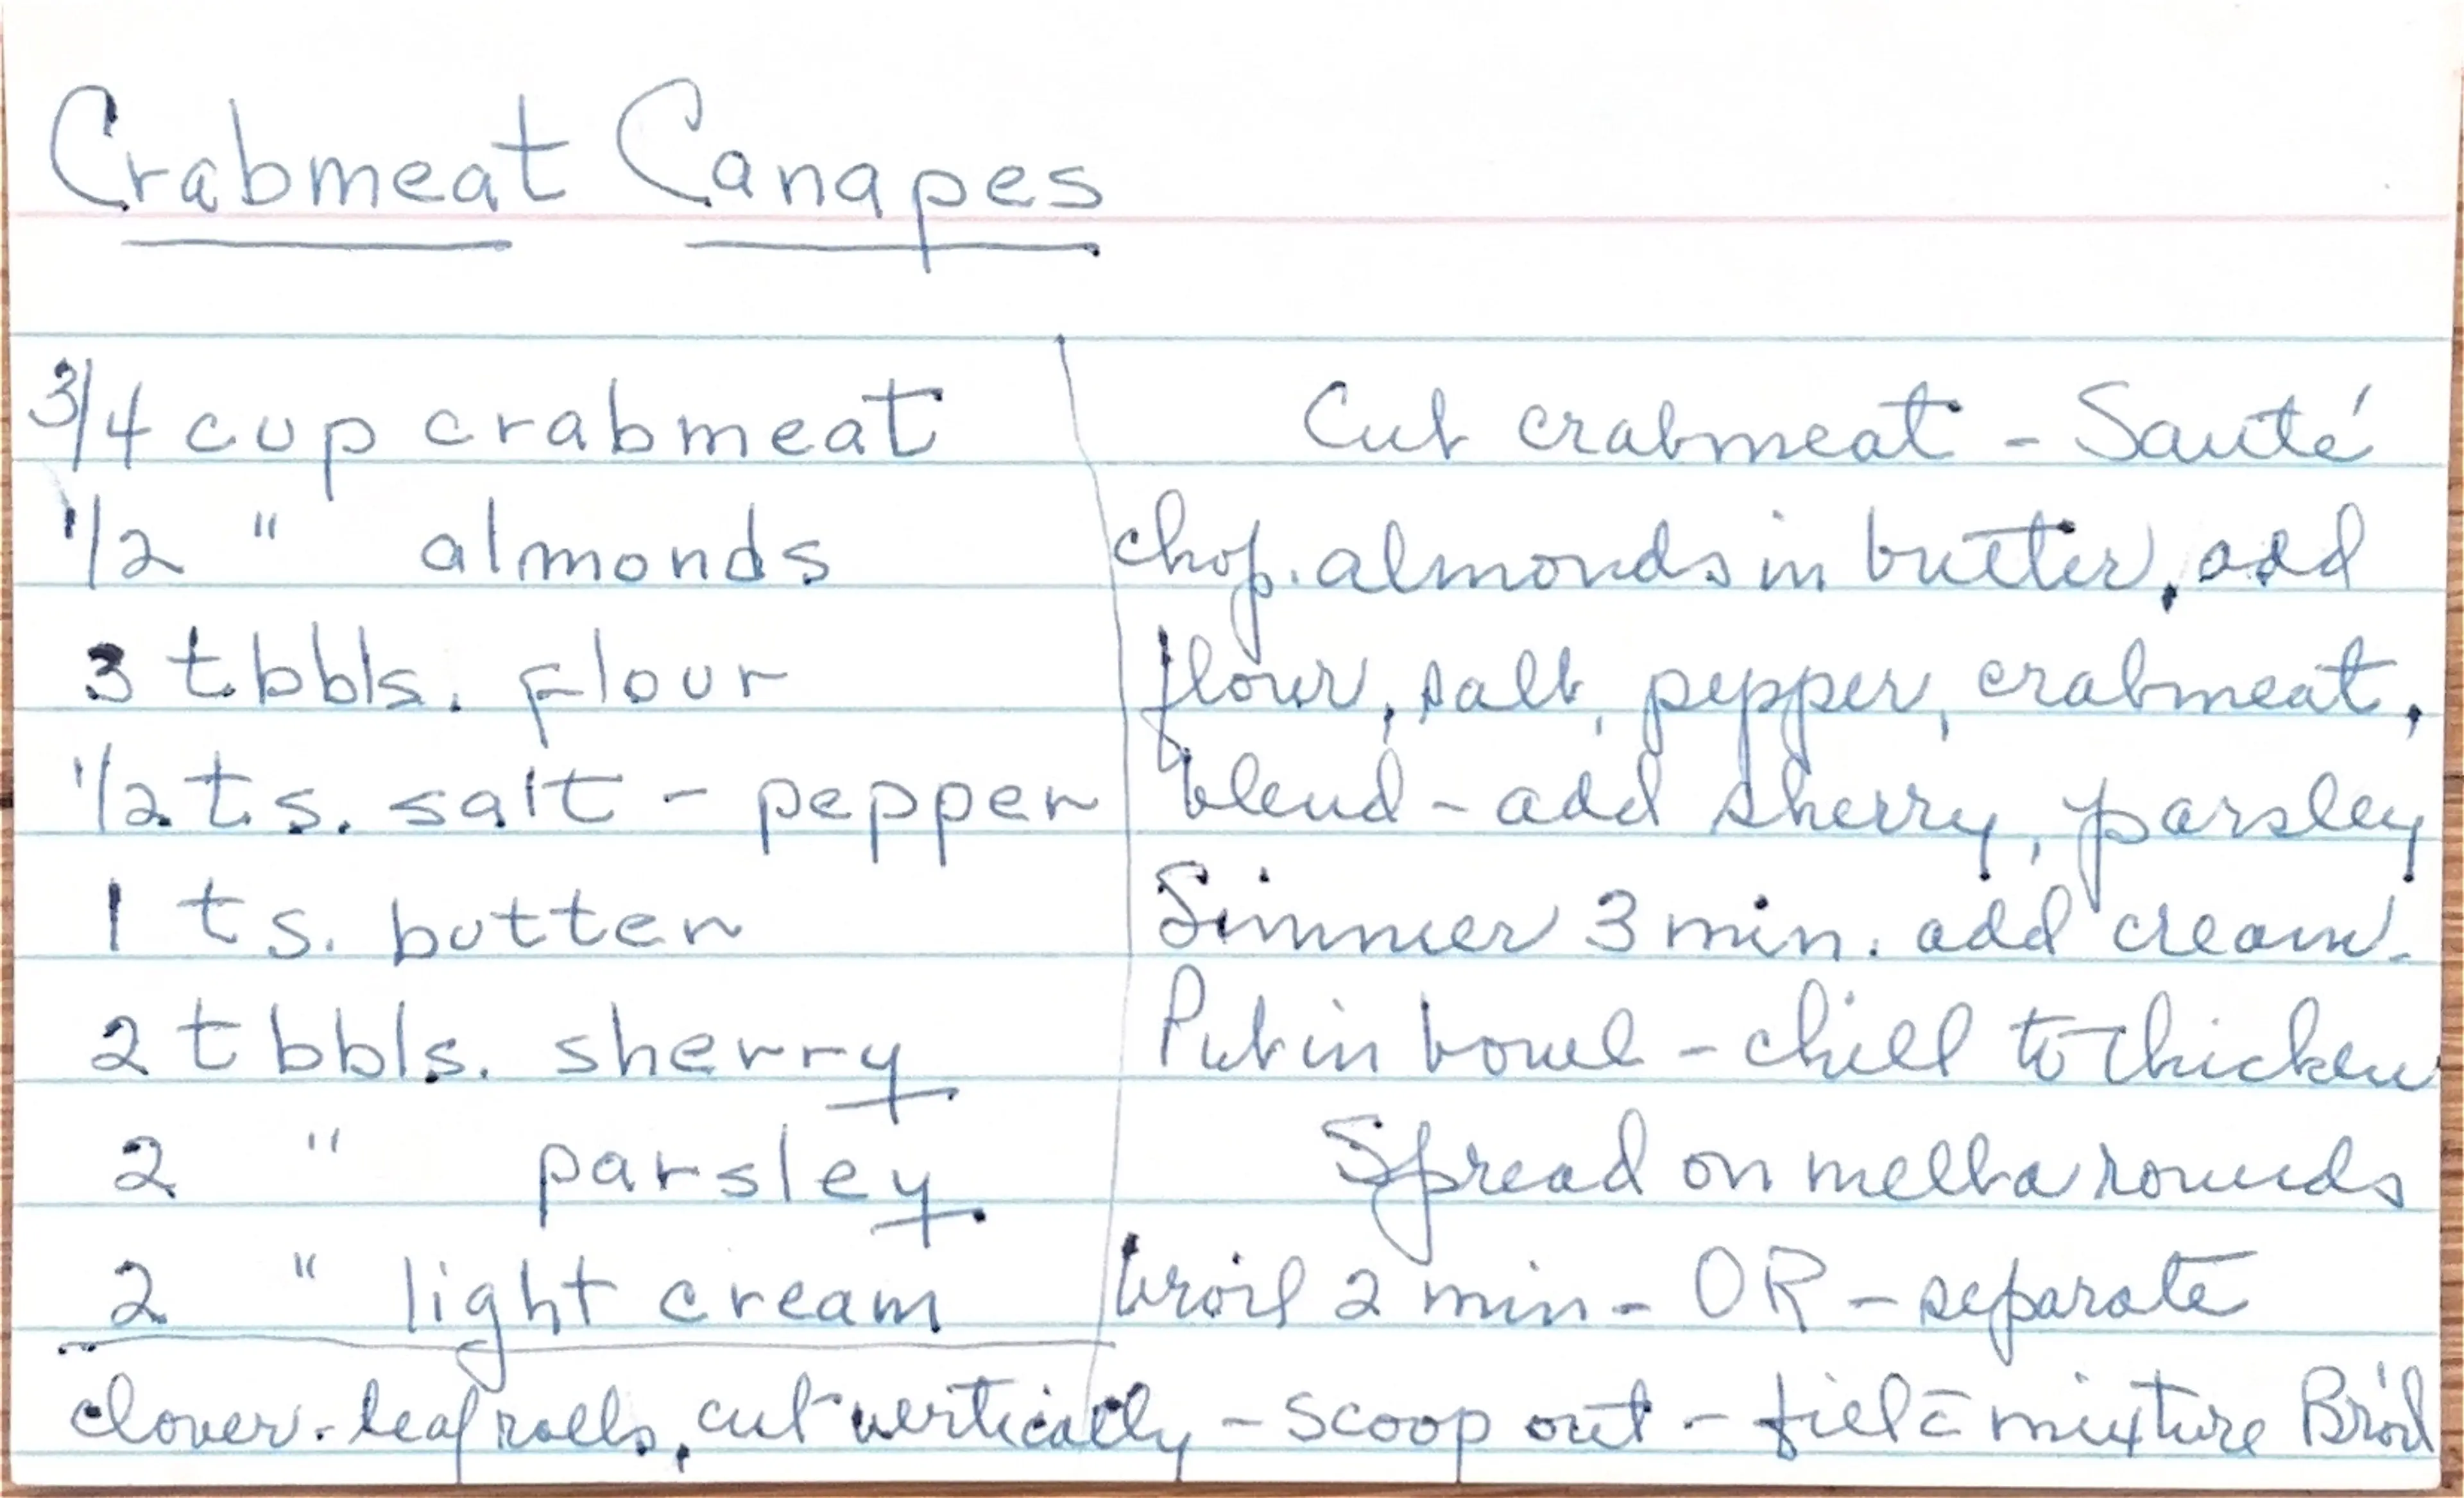 Crabmeat Canapes
3/4 cup crabmeat
1/2 " almonds
3 tbbls. flour
1/2 ts. salt - pepper
1 ts. butter
2 tbbls. sherry
2 " parsley
2 " light cream
Cut crabmeat - Sauté
chop. almonds in butter, add
flour, salt, pepper, crabmeat,
blend - add sherry, parsley
Simmer 3 min. add cream -
Put in bowl - chill to thicken
Spread on melba rounds
broil 2 min - OR - separate
clover-leaf rolls, cut vertically - scoop out - fill c̄ mixture Broil